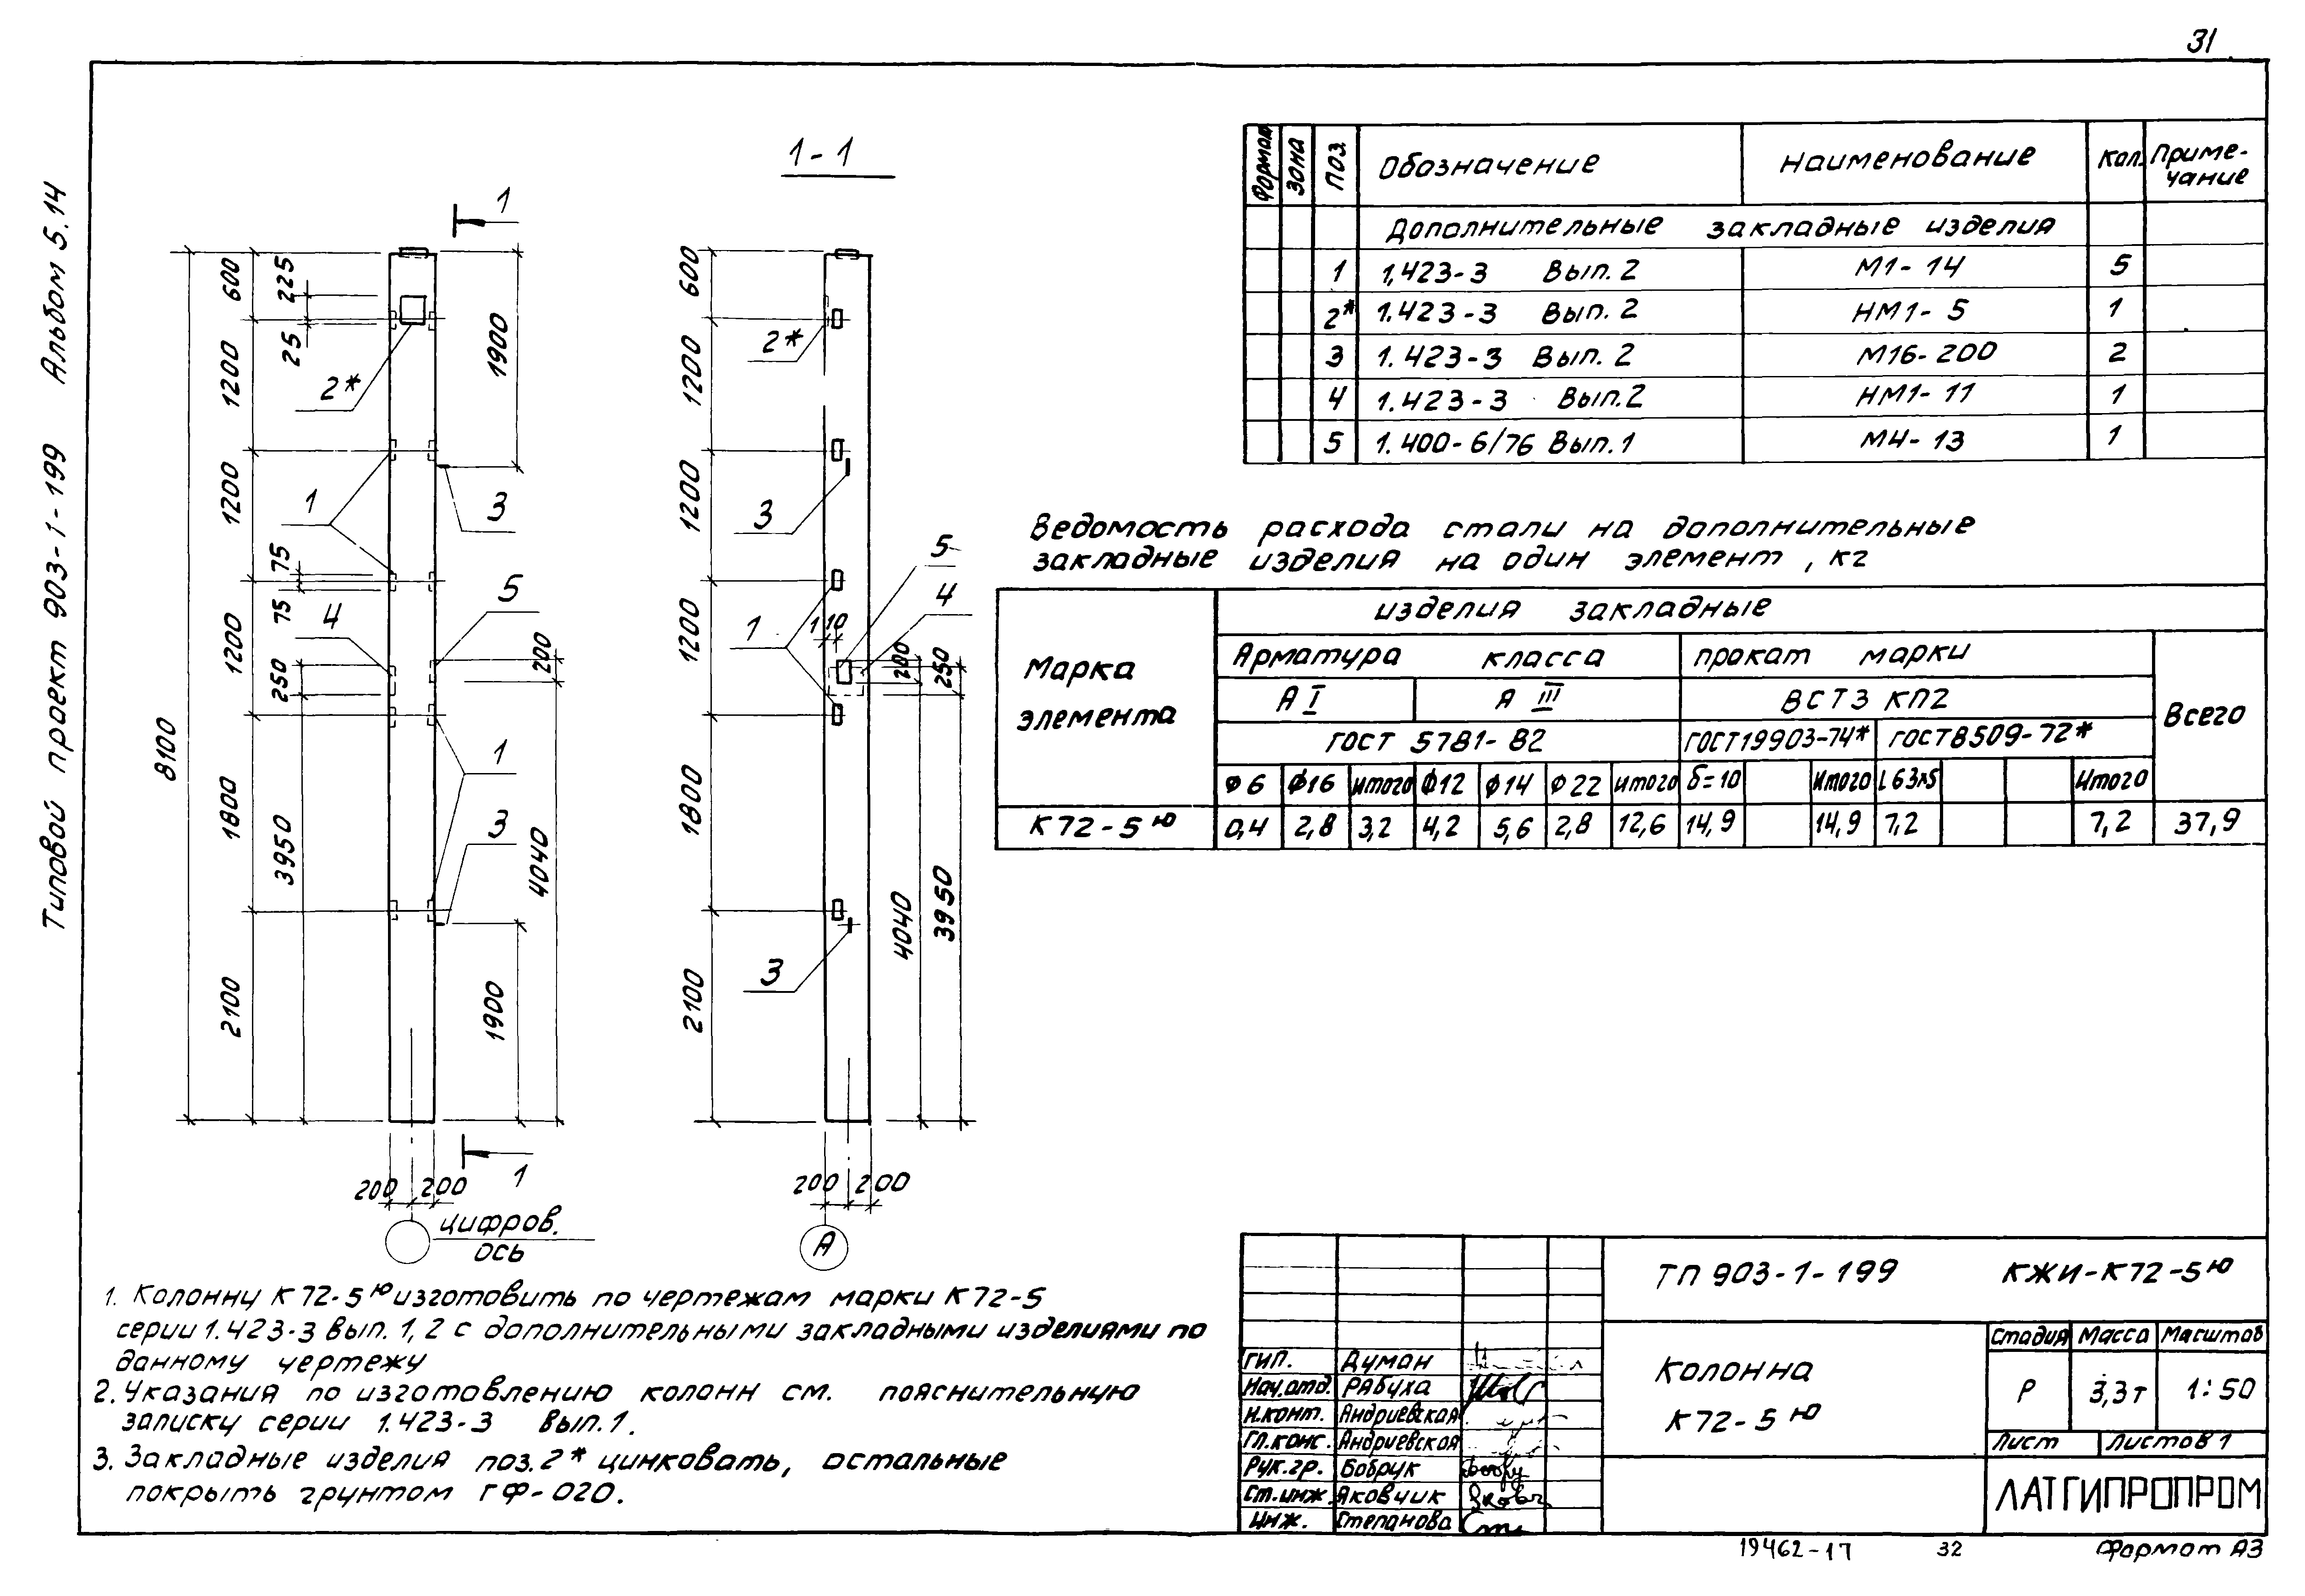 31
Типовой проект 903-1-199 Альбом 5.14
1
1-1
8100
600
1200
1200
1200
1800
2100
225
25
75
75
250
3950
2*
1
4
1900
3
5
200
1
3
4040
1900
1
200 200
цифров.
ось
600
1200
1200
1200
1800
2100
2*
3
5
4
1
110
200
250
3
4040
3950
200 200
А
Формат Зона Поз. Обозначение Наименование Кол. Приме-
чание
Дополнительные закладные изделия
1 1.423-3 Вып. 2 М1-14 5
2* 1.423-3 Вып. 2 НМ1-5 1
3 1.423-3 Вып. 2 М16-200 2
4 1.423-3 Вып. 2 НМ1-11 1
5 1.400-6/76 Вып. 1 М4-13 1
Ведомость расхода стали на дополнительные
закладные изделия на один элемент, кг
Марка
элемента
изделия закладные
Арматура класса прокат марки
А I А III ВСТ3 КП2
Всего
ГОСТ 5781-82 ГОСТ19903-74* ГОСТ8509-72*
Ф6 Ф16 итого Ф12 Ф14 Ф22 итого δ=10 итого L63x5 итого
К72-5ю 0,4 2,8 3,2 4,2 5,6 2,8 12,6 14,9 14,9 7,2 7,2 37,9
1. Колонну К72-5ю изготовить по чертежам марки К72-5
серии 1.423-3 вып. 1, 2 с дополнительными закладными изделиями по
данному чертежу
2. Указания по изготовлению колонн см. пояснительную
записку серии 1.423-3 вып. 1.
3. Закладные изделия поз. 2* цинковать, остальные
покрыть грунтом ГФ-020.
ТП 903-1-199 КЖИ-К72-5ю
Колонна
К72-5ю
Стадия Масса Масштаб
Р 3,3т 1:50
Лист Листов 1
ЛАТГИПРОПРОМ
ГИП. Думан
Нач.отд. Рябуха
Н.конт. Андриевская
Гл.конс. Андриевская
Рук.гр. Бобрук
Ст.инж. Яковчик
Инж. Степанова
19462-17 32 Формат А3